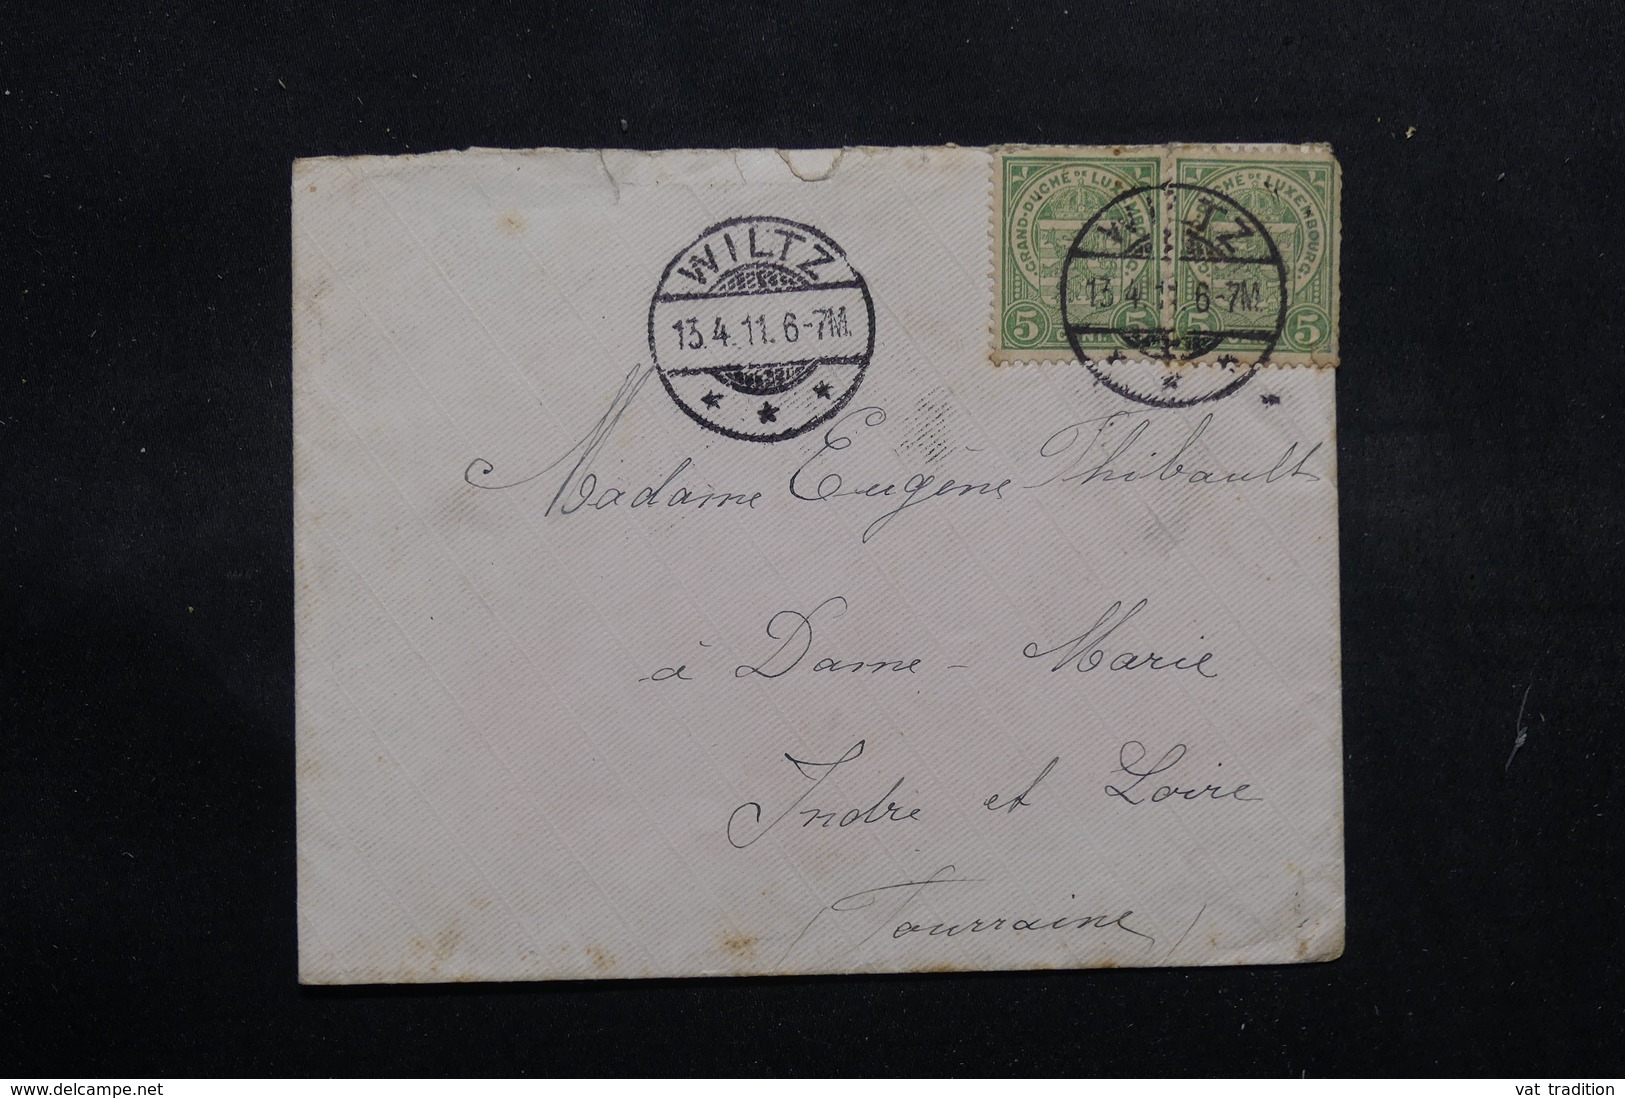 GRAND-DUCHÉ DE LUXEMBOURG.
5 5
CENT.
DUCHÉ DE LUXEMBOURG.
5 5
WILTZ
13.4.11. 6-7M.
WILTZ
13.4.11. 6-7M.
Madame Eugène Thibault
à Dame-Marie
Indre et Loire
(Tourraine)
www.delcampe.net
vat tradition